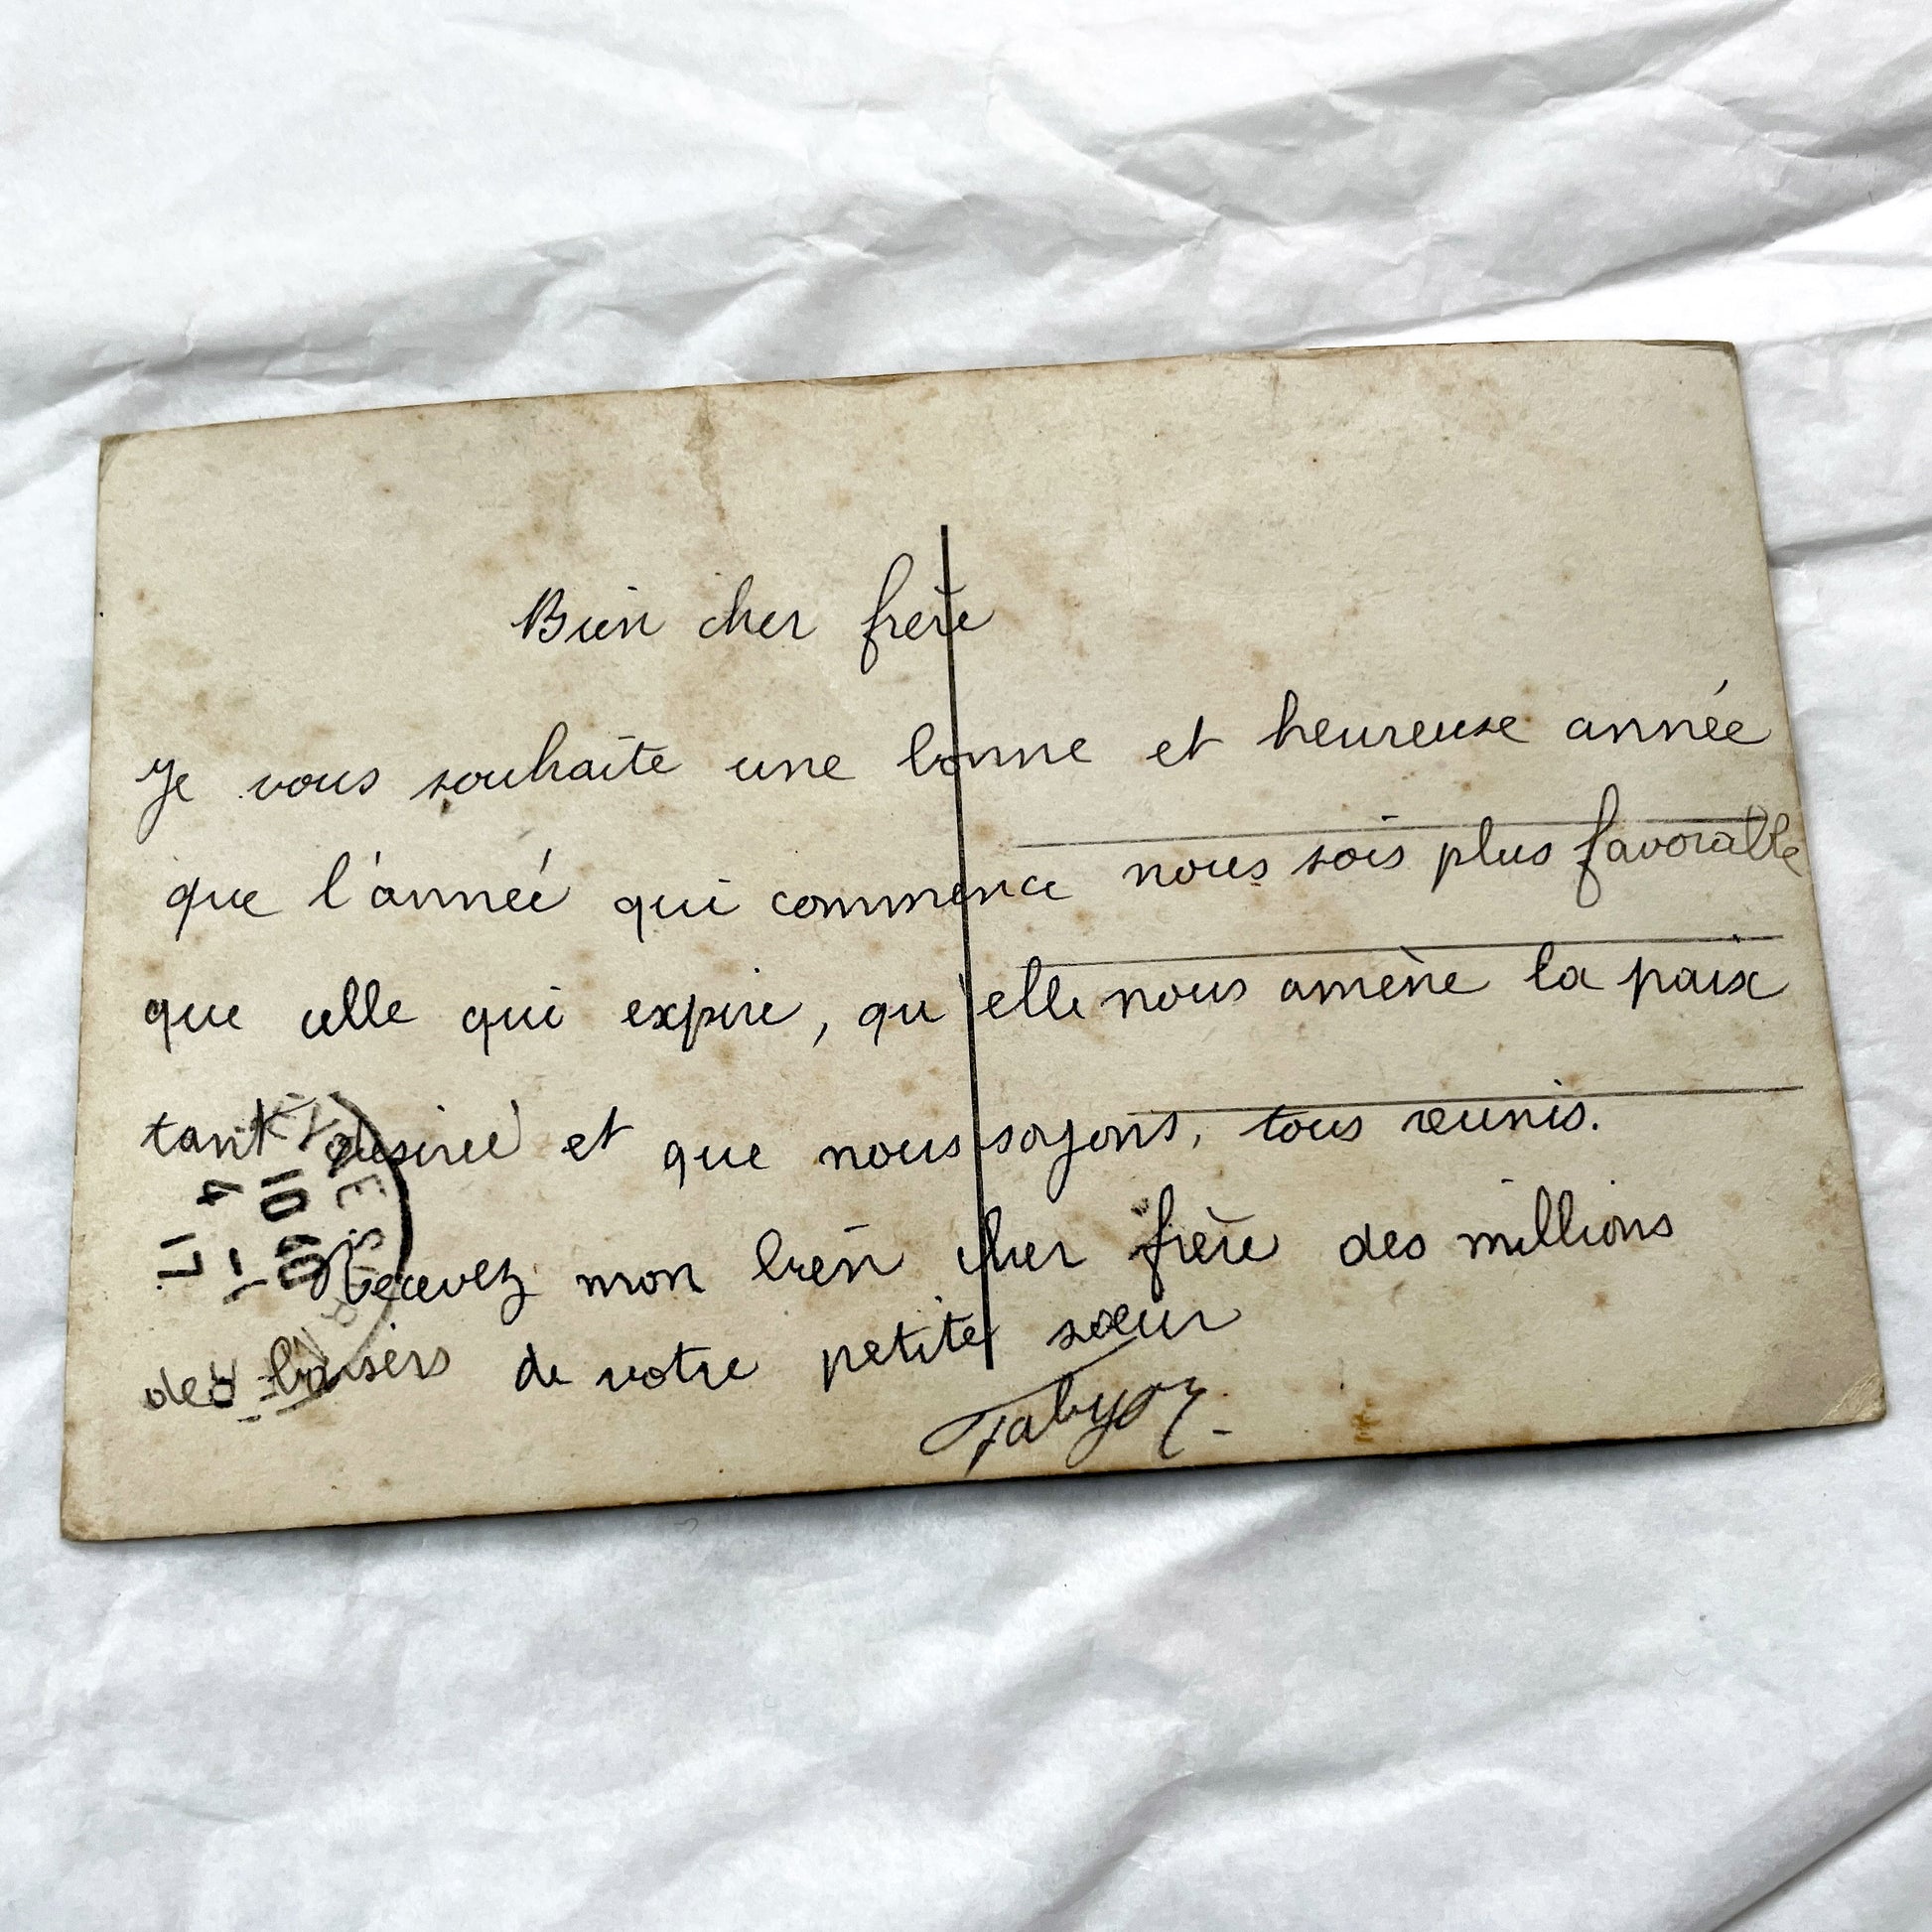 Bien cher frère
Je vous souhaite une bonne et heureuse année
que l'année qui commence nous sois plus favorable
que celle qui expire, qu'elle nous amène la paix
tant désirée et que nous soyons, tous réunis.
Recevez mon bien cher frère des millions
des baisers de votre petite sœur
10 40
4 - 1
17